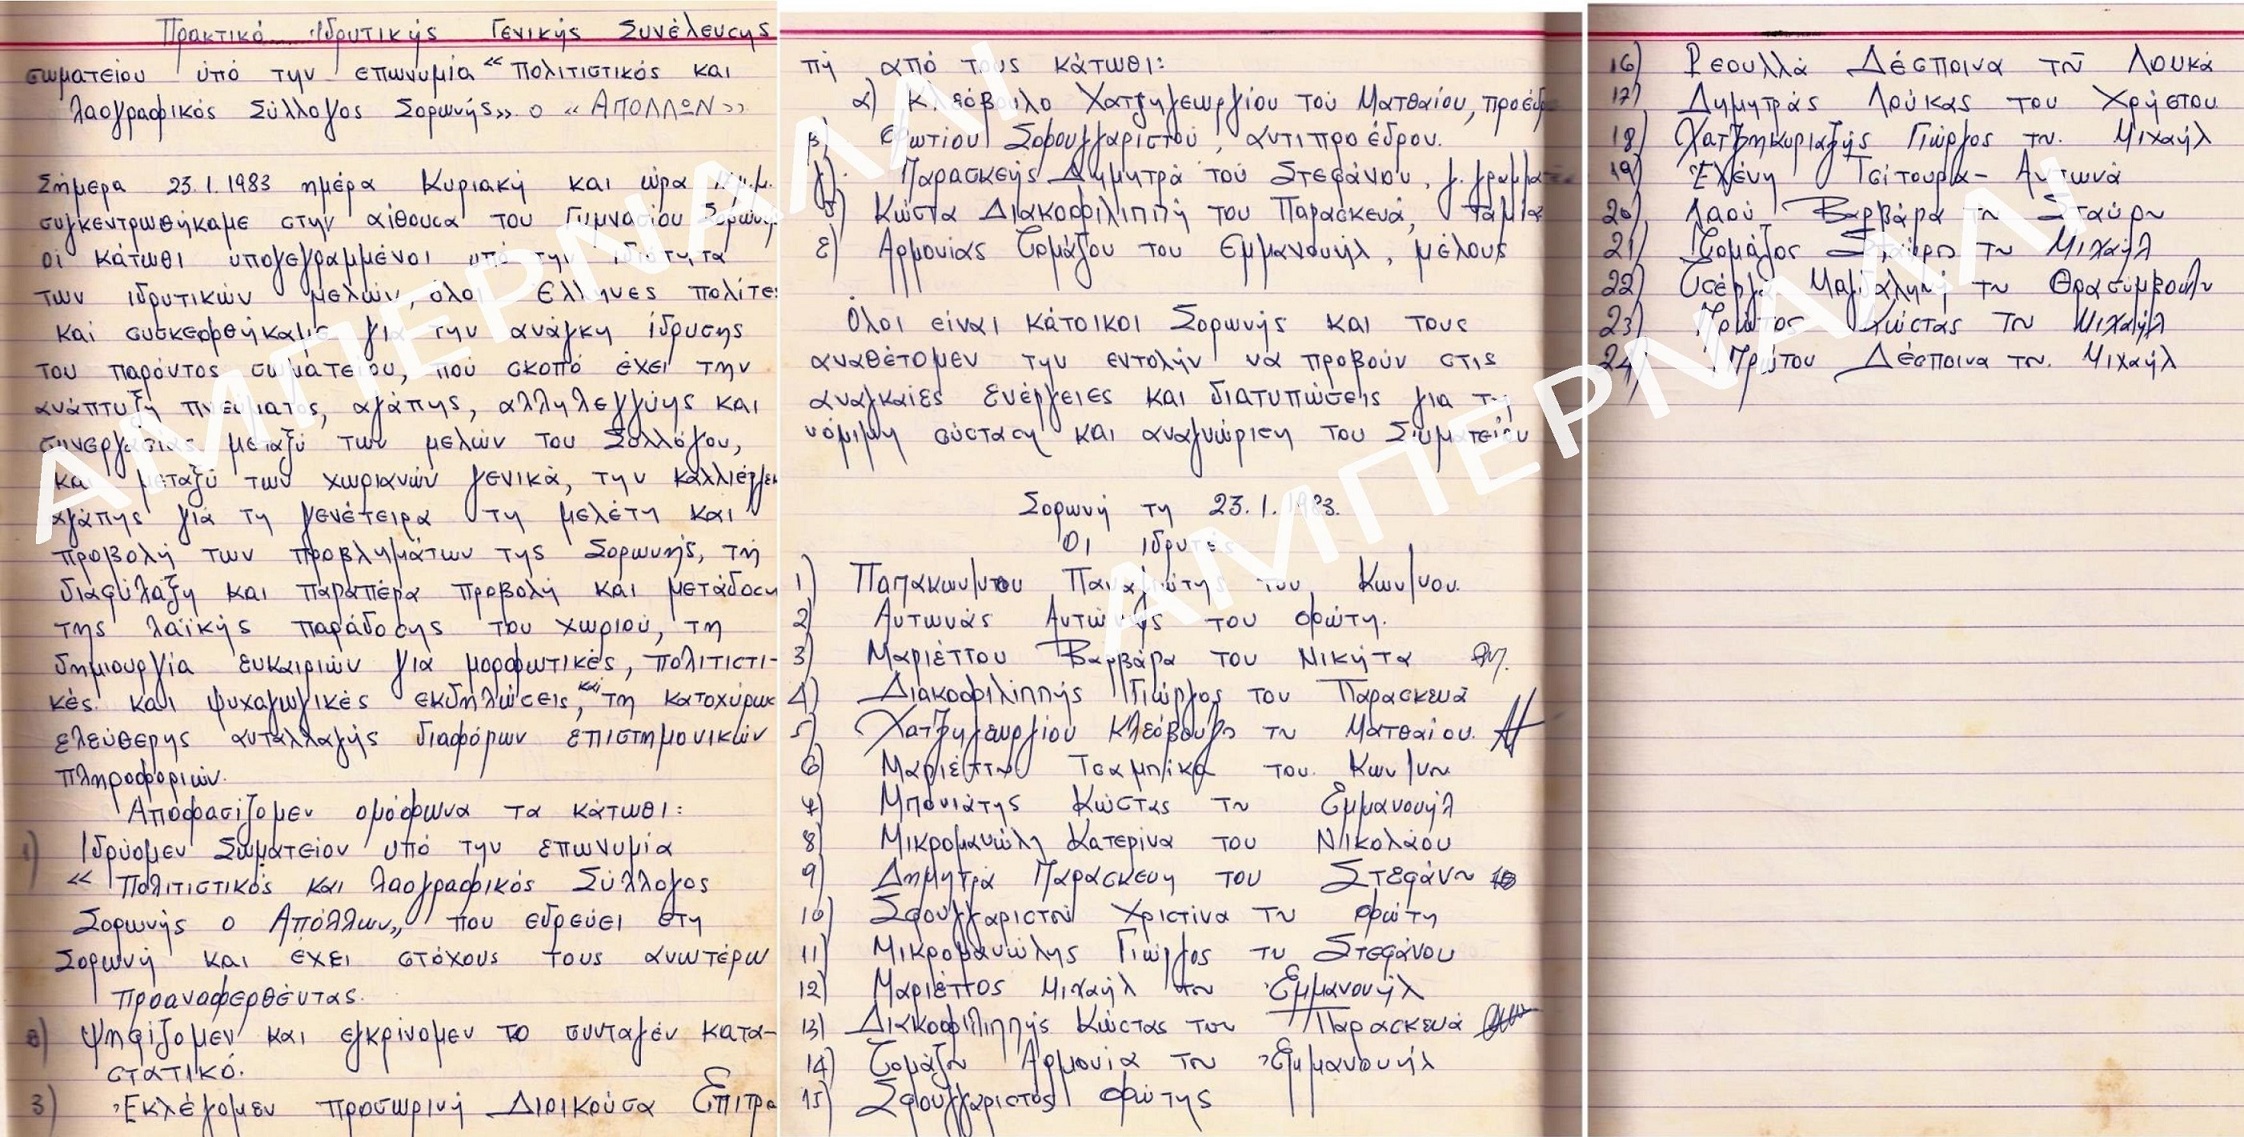 Πρακτικό Ιδρυτικής Γενικής Συνέλευσης
σωματείου υπό την επωνυμία “Πολιτιστικός και
Λαογραφικός Σύλλογος Σορωνής» ο «ΑΠΟΛΛΩΝ»
Σήμερα 23.1.1983 ημέρα Κυριακή και ώρα
συγκεντρωθήκαμε στην αίθουσα του Γυμνασίου Σορωνής
οι κάτωθι υπογεγραμμένοι υπό την ιδιότητα
των ιδρυτικών μελών, όλοι Έλληνες πολίτες
και συσκεφθήκαμε για την ανάγκη ίδρυσης
του παρόντος σωματείου, πού σκοπό έχει την
ανάπτυξη πνεύματος, αγάπης, αλληλεγγύης και
συνεργασίας μεταξύ των μελών του Συλλόγου,
και μεταξύ των χωριανών γενικά, την καλλιέργει
αγάπης γιά τη γενέτειρα τη μελέτη και
προβολή των προβλημάτων της Σορωνής, τη
διαφύλαξη και παραπέρα προβολή και μετάδοση
της λαϊκής παράδοσης του χωριού, τη
δημιουργία ευκαιριών για μορφωτικές, πολιτιστι-
κές και ψυχαγωγικές εκδηλώσεις, και τη κατοχύρωσ
ελεύθερης ανταλλαγής διαφόρων επιστημονικών
πληροφοριών.
Αποφασίζομεν ομόφωνα τα κάτωθι:
1) Ιδρύομεν Σωματείον υπό την επωνυμία
“Πολιτιστικός και Λαογραφικός Σύλλογος
Σορωνής ο Απόλλων„ που εδρεύει στη
Σορωνή και έχει στόχους τους ανωτέρω
προαναφερθέντας.
2) Ψηφίζομεν και εγκρίνομεν το συνταγέν κατα-
στατικό.
3) Εκλέγομεν προσωρινή Διοικούσα Επιτρο
πή από τους κάτωθι:
α) Κλεόβουλο Χατζηγεωργίου τού Ματθαίου, προέδρ
β) Φωτίου Σφουγγαριστού, αντιπροέδρου.
γ). Παρασκεής Δημητρά τού Στεφάνου, γ. γραμματέα
δ) Κώστα Διακοφιλιππή του Παρασκευά, ταμία
ε) Αρμονίας Τσομάζου του Εμμανουήλ, μέλους
Όλοι είναι κάτοικοι Σορωνής και τους
αναθέτομεν την εντολήν να προβούν στις
αναγκαίες ενέργειες και διατυπώσεις για τη
νόμιμη σύσταση και αναγνώριση του Σωματείου
Σορωνή τη 23.1.1983.
Οι ιδρυτές
1) Παπακων/νου Παναγιώτης του Κων/νου.
2) Αντωνάς Αντώνης του Φώτη.
3) Μαριέττου Βαρβάρα του Νικήτα
4) Διακοφιλιππής Γιώργος του Παρασκευά
5) Χατζηγεωργίου Κλεόβουλο του Ματθαίου.
6) Μαριέττου Τσαμπίκα του Κων/νου
7) Μπονιάτης Κώστας του Εμμανουήλ
8) Μικρομανώλη Κατερίνα του Νικολάου
9) Δημητρά Παρασκευη του Στεφάνου
10) Σφουγγαριστού Χριστίνα του Φώτη
11) Μικρομανώλης Γιώργος του Στεφάνου
12) Μαριέττος Μιχαήλ του Εμμανουήλ
13) Διακοφιλιππής Κώστας του Παρασκευά
14) Τσομάζου Αρμονία του Εμμανουήλ
15) Σφουγγαριστός Φώτης
16) Ρεουλλά Δέσποινα του Λουκά
17) Δημητράς Λούκας του Χρήστου
18) Χατζηκυριαζής Γιώργος του Μιχαήλ
19) Ελένη Τσίτουρα - Αντωνά
20) Λαού Βαρβάρα του Σταύρου
21) Τσομάζος Σταύρο του Μιχαήλ
22) Τσέργα Μαγδαληνή του Θρασύμβουλου
23) Πρώτος Κώστας του Μιχαήλ
24) Πρώτου Δέσποινα του. Μιχαήλ
ΑΜΠΕΡΝΑΛΛΙ
ΑΜΠΕΡΝΑΛΛΙ